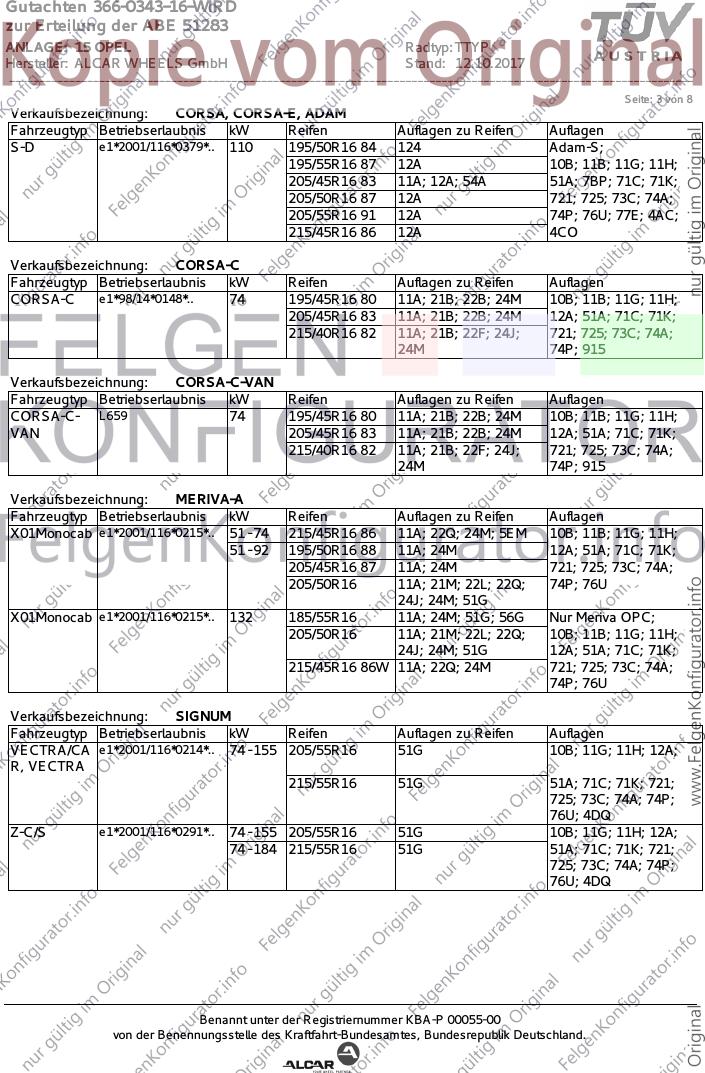 Gutachten 366-0343-16-WIRD
zur Erteilung der ABE 51283
ANLAGE: 15 OPEL
Hersteller: ALCAR WHEELS GmbH
Radtyp: TTYP
Stand: 12.10.2017
TÜV
AUSTRIA
Kopie vom Original
Seite: 3 von 8
Verkaufsbezeichnung: CORSA, CORSA-E, ADAM
Fahrzeugtyp Betriebserlaubnis kW Reifen Auflagen zu Reifen Auflagen
S-D e1*2001/116*0379*.. 110 195/50R16 84 124 Adam-S;
195/55R16 87 12A 10B; 11B; 11G; 11H;
205/45R16 83 11A; 12A; 54A 51A; 7BP; 71C; 71K;
205/50R16 87 12A 721; 725; 73C; 74A;
205/55R16 91 12A 74P; 76U; 77E; 4AC;
215/45R16 86 12A 4CO
Verkaufsbezeichnung: CORSA-C
Fahrzeugtyp Betriebserlaubnis kW Reifen Auflagen zu Reifen Auflagen
CORSA-C e1*98/14*0148*.. 74 195/45R16 80 11A; 21B; 22B; 24M 10B; 11B; 11G; 11H;
205/45R16 83 11A; 21B; 22B; 24M 12A; 51A; 71C; 71K;
215/40R16 82 11A; 21B; 22F; 24J; 721; 725; 73C; 74A;
24M 74P; 915
FELGEN
Verkaufsbezeichnung: CORSA-C-VAN
Fahrzeugtyp Betriebserlaubnis kW Reifen Auflagen zu Reifen Auflagen
CORSA-C- L659 74 195/45R16 80 11A; 21B; 22B; 24M 10B; 11B; 11G; 11H;
VAN 205/45R16 83 11A; 21B; 22B; 24M 12A; 51A; 71C; 71K;
215/40R16 82 11A; 21B; 22F; 24J; 721; 725; 73C; 74A;
24M 74P; 915
KONFIGURATOR
Verkaufsbezeichnung: MERIVA-A
Fahrzeugtyp Betriebserlaubnis kW Reifen Auflagen zu Reifen Auflagen
X01Monocab e1*2001/116*0215*.. 51-74 215/45R16 86 11A; 22Q; 24M; 5EM 10B; 11B; 11G; 11H;
51-92 195/50R16 88 11A; 24M 12A; 51A; 71C; 71K;
205/45R16 87 11A; 24M 721; 725; 73C; 74A;
205/50R16 11A; 21M; 22L; 22Q; 74P; 76U
24J; 24M; 51G
FelgenKonfigurator.info
X01Monocab e1*2001/116*0215*.. 132 185/55R16 11A; 24M; 51G; 56G Nur Meriva OPC;
205/50R16 11A; 21M; 22L; 22Q; 10B; 11B; 11G; 11H;
24J; 24M; 51G 12A; 51A; 71C; 71K;
215/45R16 86W 11A; 22Q; 24M 721; 725; 73C; 74A;
74P; 76U
Verkaufsbezeichnung: SIGNUM
Fahrzeugtyp Betriebserlaubnis kW Reifen Auflagen zu Reifen Auflagen
VECTRA/CA e1*2001/116*0214*.. 74-155 205/55R16 51G 10B; 11G; 11H; 12A;
R, VECTRA
215/55R16 51G 51A; 71C; 71K; 721;
725; 73C; 74A; 74P;
76U; 4DQ
Z-C/S e1*2001/116*0291*.. 74-155 205/55R16 51G 10B; 11G; 11H; 12A;
74-184 215/55R16 51G 51A; 71C; 71K; 721;
725; 73C; 74A; 74P;
76U; 4DQ
nur gültig im Original
www.FelgenKonfigurator.info
Benannt unter der Registriernummer KBA-P 00055-00
von der Benennungsstelle des Kraftfahrt-Bundesamtes, Bundesrepublik Deutschland.
ALCAR